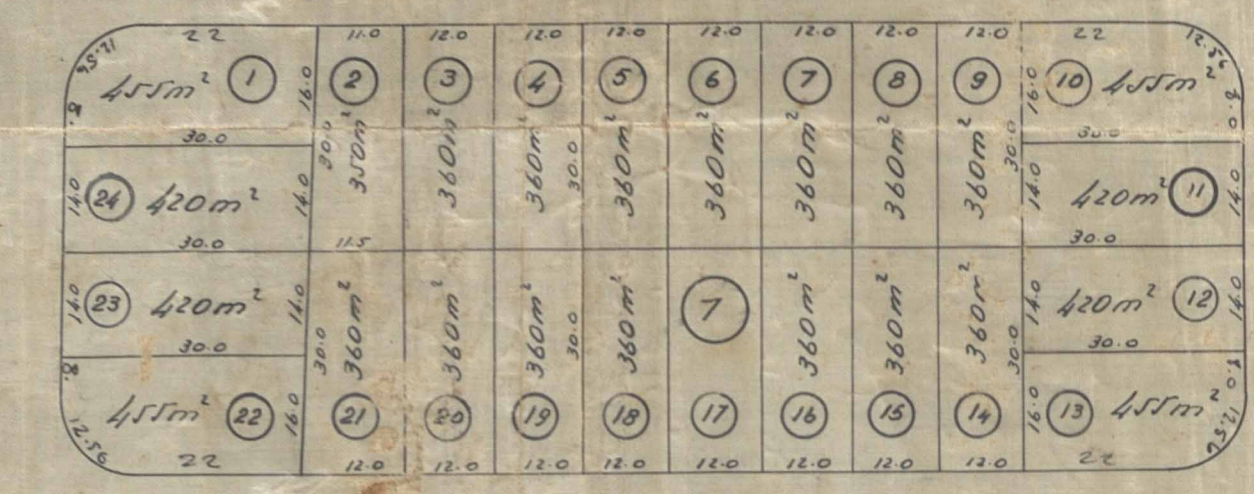 22 11.0 12.0 12.0 12.0 12.0 12.0 12.0 12.0 22
12.56 12.56
455m² 1 2 3 4 5 6 7 8 9 10 455m²
8. 16.0 16.0 8.0
30.0 30.0
30.0 350m² 360m² 360m² 30.0 360m² 360m² 360m² 360m² 360m² 30.0
14.0 24 420m² 14.0 14.0 420m² 11 14.0
30.0 11.5 30.0
14.0 23 420m² 14.0 14.0 420m² 12 14.0
30.0 30.0
30.0 360m² 360m² 360m² 30.0 360m² 7 360m² 360m² 360m² 30.0
8. 16.0 16.0 8.0
455m² 22 21 20 19 18 17 16 15 14 13 455m²
12.56 12.56
22 12.0 12.0 12.0 12.0 12.0 12.0 12.0 12.0 22